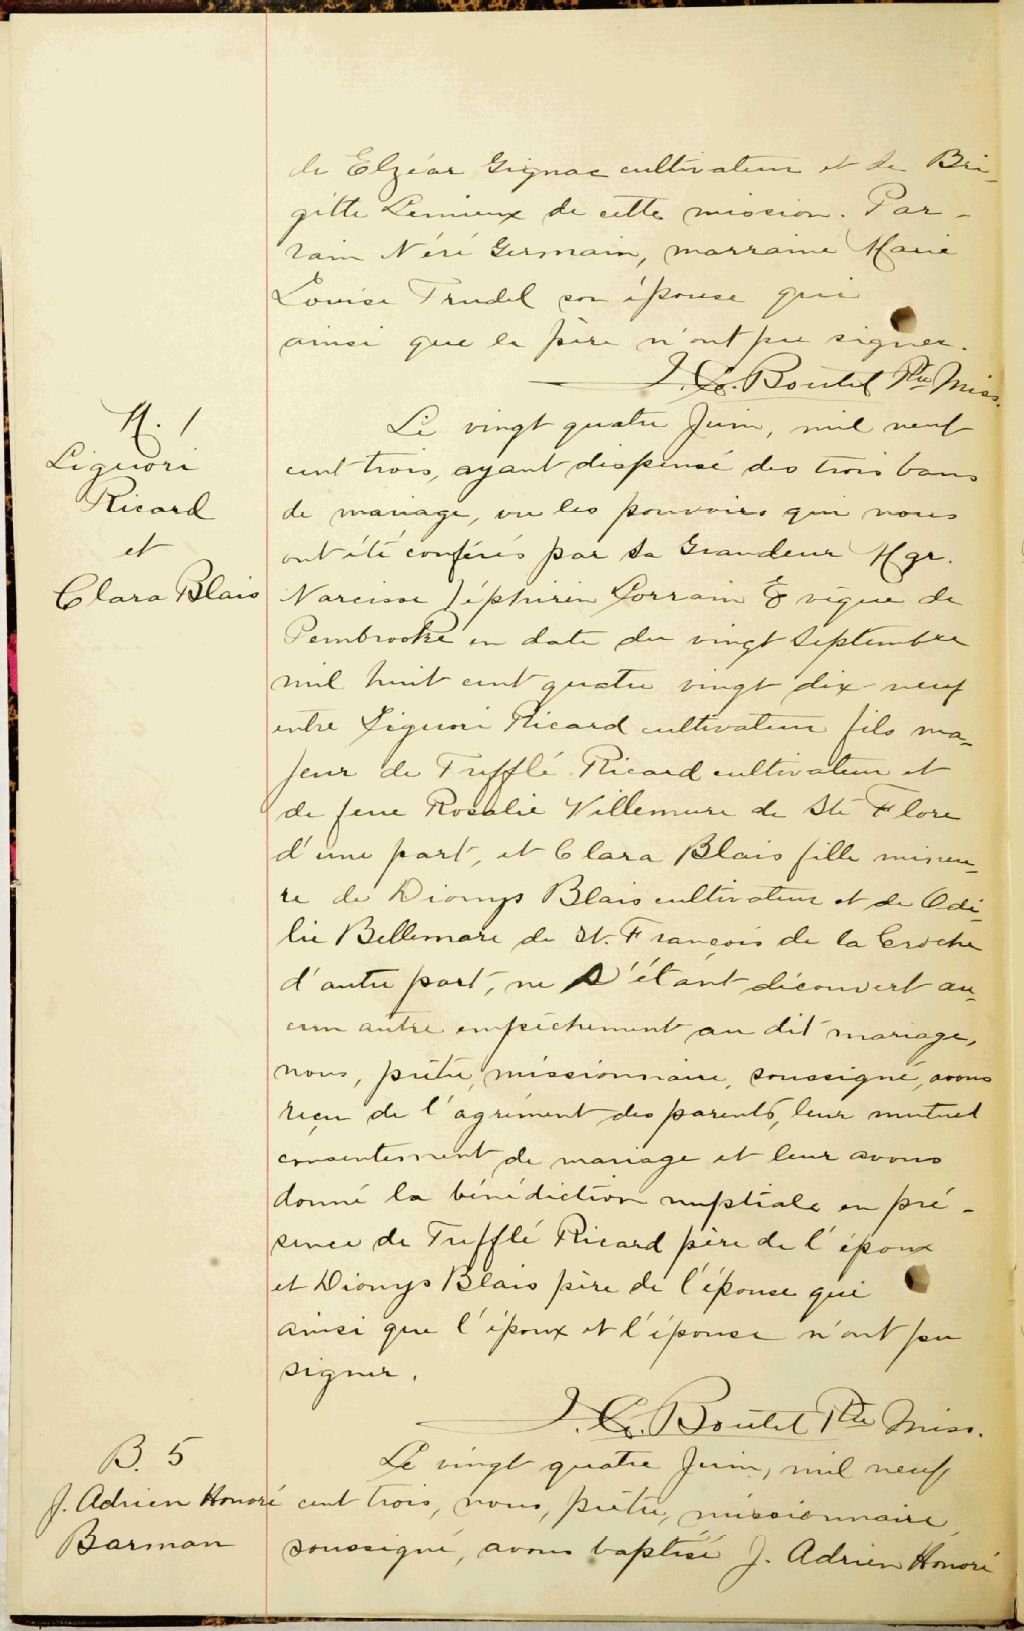 de Elzéar Gignac cultivateur et de Bri-
gitte Lemieux de cette mission. Par-
rain Néré Germain, marraine Marie
Louise Trudel son épouse qui
ainsi que le père n'ont pu signer.
J. C. Boutet Ptre Miss.
M. 1
Liguori
Ricard
et
Clara Blais
Le vingt quatre Juin, mil neuf
cent trois, ayant dispensé des trois bans
de mariage, vu les pouvoirs qui nous
ont été conférés par Sa Grandeur Mgr.
Narcisse Zéphirin Lorrain Évêque de
Pembrooke en date du vingt Septembre
mil huit cent quatre vingt dix-neuf
entre Liguori Ricard cultivateur fils ma-
jeur de Trefflé Ricard cultivateur et
de feue Rosalie Villemure de Ste Flore
d'une part, et Clara Blais fille mineu-
re de Dionys Blais cultivateur et de Odi-
lie Bellemare de St. François de la Croche
d'autre part, ne s'étant découvert au-
cun autre empêchement au dit mariage,
nous, prêtre, missionnaire, soussigné, avons
reçu de l'agrément des parents, leur mutuel
consentement de mariage et leur avons
donné la bénédiction nuptiale en pré-
sence de Trefflé Ricard père de l'époux
et Dionys Blais père de l'épouse qui
ainsi que l'époux et l'épouse n'ont pu
signer.
J. C. Boutet Ptre Miss.
B. 5
J. Adrien Honoré
Barman
Le vingt quatre Juin, mil neuf
cent trois, nous, prêtre, missionnaire,
soussigné, avons baptisé J. Adrien Honoré